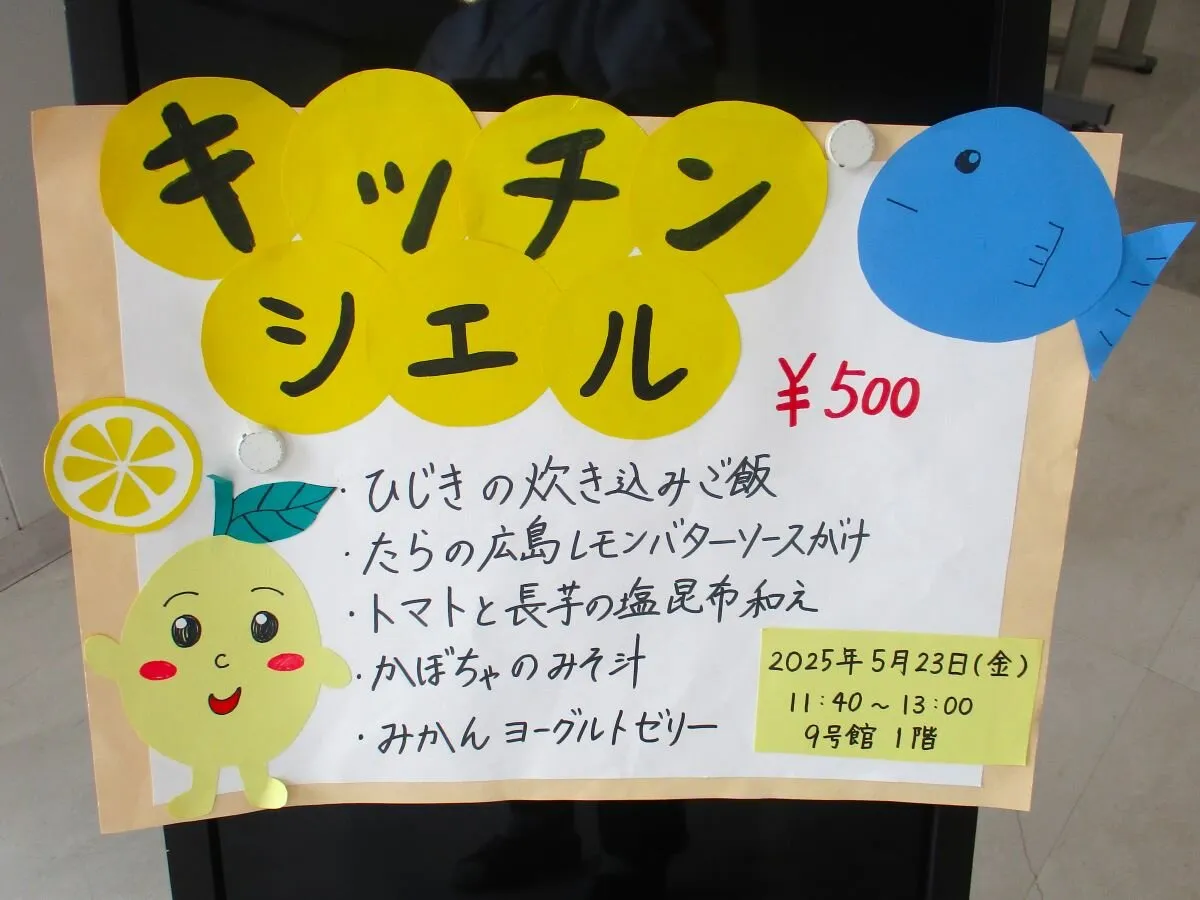 キッチン
シエル
¥500
・ひじきの炊き込みご飯
・たらの広島レモンバターソースがけ
・トマトと長芋の塩昆布和え
・かぼちゃのみそ汁
・みかんヨーグルトゼリー
2025年5月23日(金)
11:40～13:00
9号館 1階